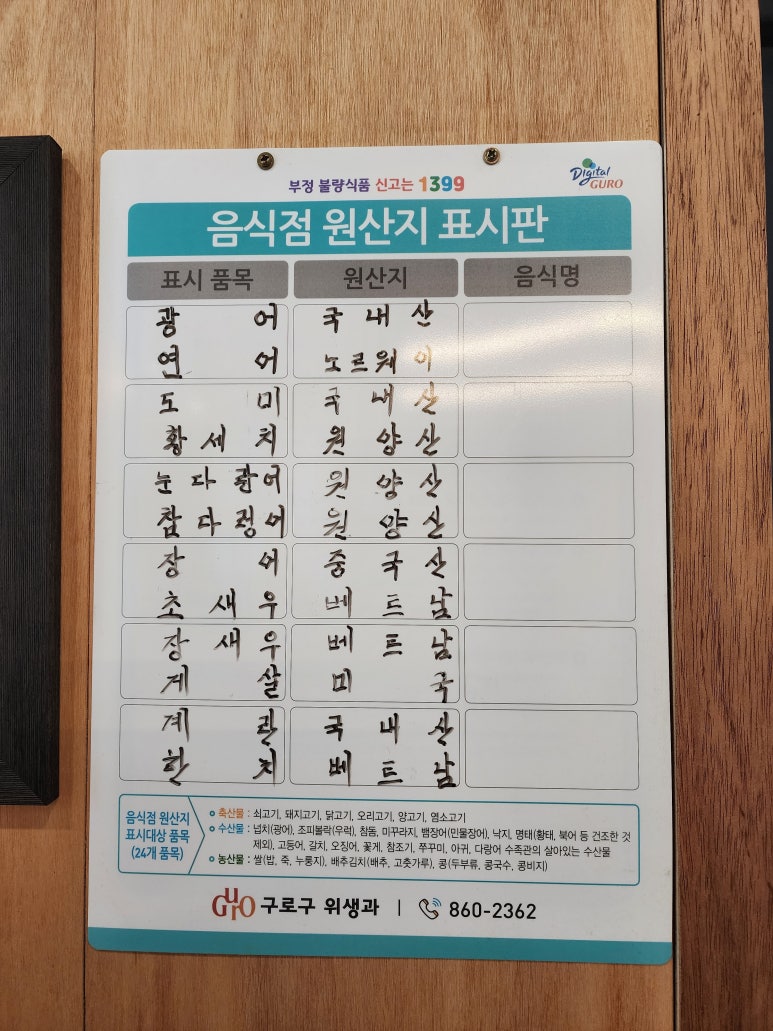 부정 불량식품 신고는 1399
Digital GURO
음식점 원산지 표시판
표시 품목 원산지 음식명
광어 국내산
연어 노르웨이
도미 국내산
황세치 원양산
눈다랑어 원양산
참다랑어 원양산
장어 중국산
초새우 베트남
장새우 베트남
게살 미국
계란 국내산
한치 베트남
음식점 원산지 표시대상 품목 (24개 품목)
축산물 : 쇠고기, 돼지고기, 닭고기, 오리고기, 양고기, 염소고기
수산물 : 넙치(광어), 조피볼락(우럭), 참돔, 미꾸라지, 뱀장어(민물장어), 낙지, 명태(황태, 북어 등 건조한 것
제외), 고등어, 갈치, 오징어, 꽃게, 참조기, 쭈꾸미, 아귀, 다랑어 수족관의 살아있는 수산물
농산물 : 쌀(밥, 죽, 누룽지), 배추김치(배추, 고춧가루), 콩(두부류, 콩국수, 콩비지)
GURO 구로구 위생과 | 860-2362